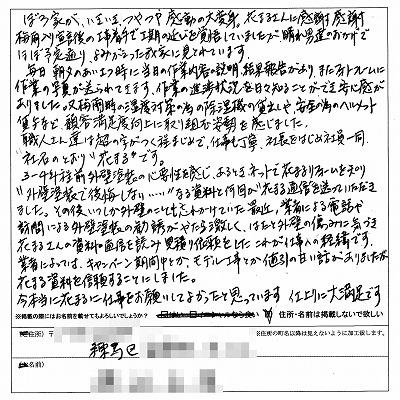 ぼろ家が、いまいま、ツヤツヤ 感動の大変身。花まるさんに感謝!感謝!
梅雨入り宣言後の工事着手で工期の延びを覚悟していましたが晴れ男達のおかげで
ほぼ予定通り よみがえった我家に見とれています。
毎日 朝夕のあいさつ時に当日の作業内容の説明、結果報告があり、またフォトフレームに
作業の写真が送られてきます。作業の進捗状況を日々知ることができ安心感が
ありました。又梅雨時の湿度対策の為の除湿機の貸出や安全の為のヘルメット
貸与など、顧客満足度向上に取り組む姿勢を感じました。
職人さん達は超の字がつく程まじめで、仕事も丁寧、社長をはじめ社員一同、
"社名のとおり" 花まるです。
3〜4年程前外壁塗装の必要性を感じ、あるときネットで花まるリフォームを知り
"外壁塗装で後悔しない……"なる資料と何回か花まる通信を送っていただき
ました。その後いつしか外壁のことも忘れかけていた最近、業者による電話や
訪問による外壁塗装の勧誘がやたら激しく、はたと外壁の傷みに気づき
花まるさんの資料や通信を読み見積り依頼をしたこれが仕事への経緯です。
業者によっては、キャンペーン期間中とか、モデル工事とか値引の甘い話がありましたが
花まる資料を信頼することにしました。
今本当に花まるに仕事をお願いしてよかったと思っています 仕上りに大満足です
※掲載の際にはお名前を載せてもよろしいでしょうか? 住所・名前は掲載しないで欲しい
ご住所) 〒 ※住所の町名以降は見えないように加工致します。
練馬区
お名前)